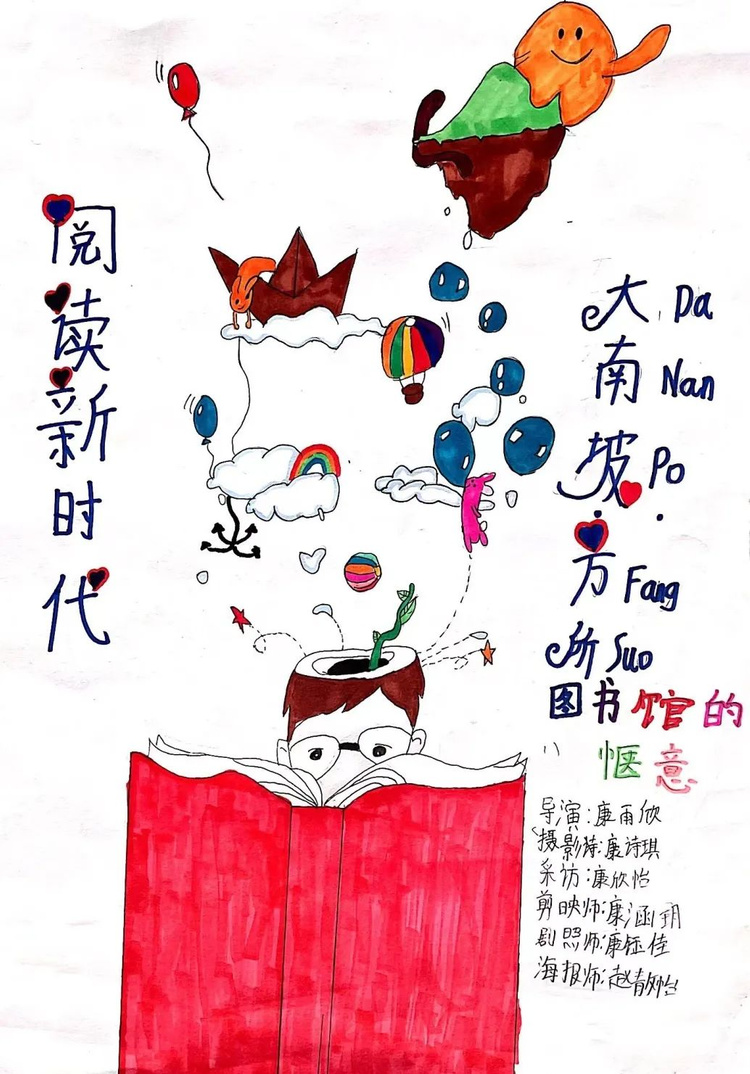 阅读新时代
大 Da
南 Nan
坡 Po
· ·
方 Fang
所 Suo
图书馆的
惬意
导演:康雨欣
摄影师:康诗琪
采访:康欣怡
剪映师:康涵玥
剧照师:康钰佳
海报师: